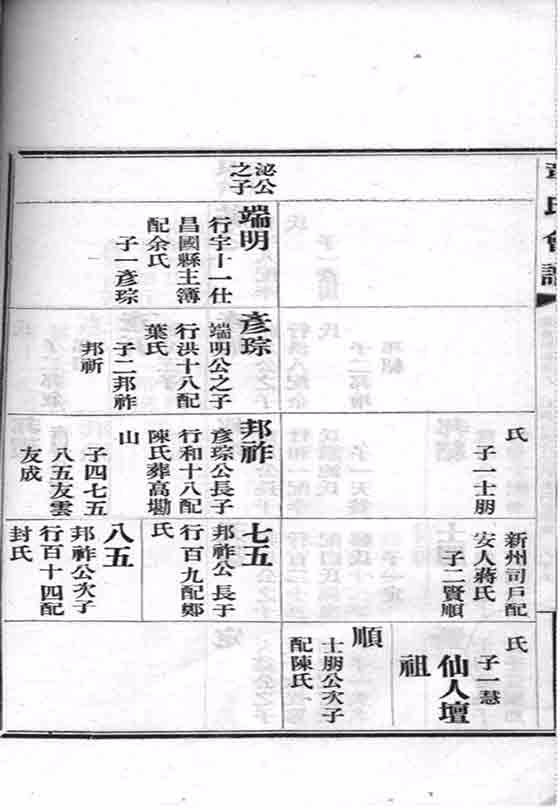 氏會譜
泌公
之子
端明
行宇十一仕
昌國縣主簿
配余氏
子一彥琮
彥琮
端明公之子
行洪十八配
葉氏
子二邦祚
邦祈
氏
子一士朋
邦祚
彥琮公長子
行和十八配
陳氏葬高墈
山
子四七五
八五友雲
友成
新州司戶配
安人蔣氏
子二賢順
七五
邦祚公長于
行百九配鄭
氏
八五
邦祚公次子
行百十四配
封氏
氏
子一慧
仙人壇
祖
順
士朋公次子
配陳氏